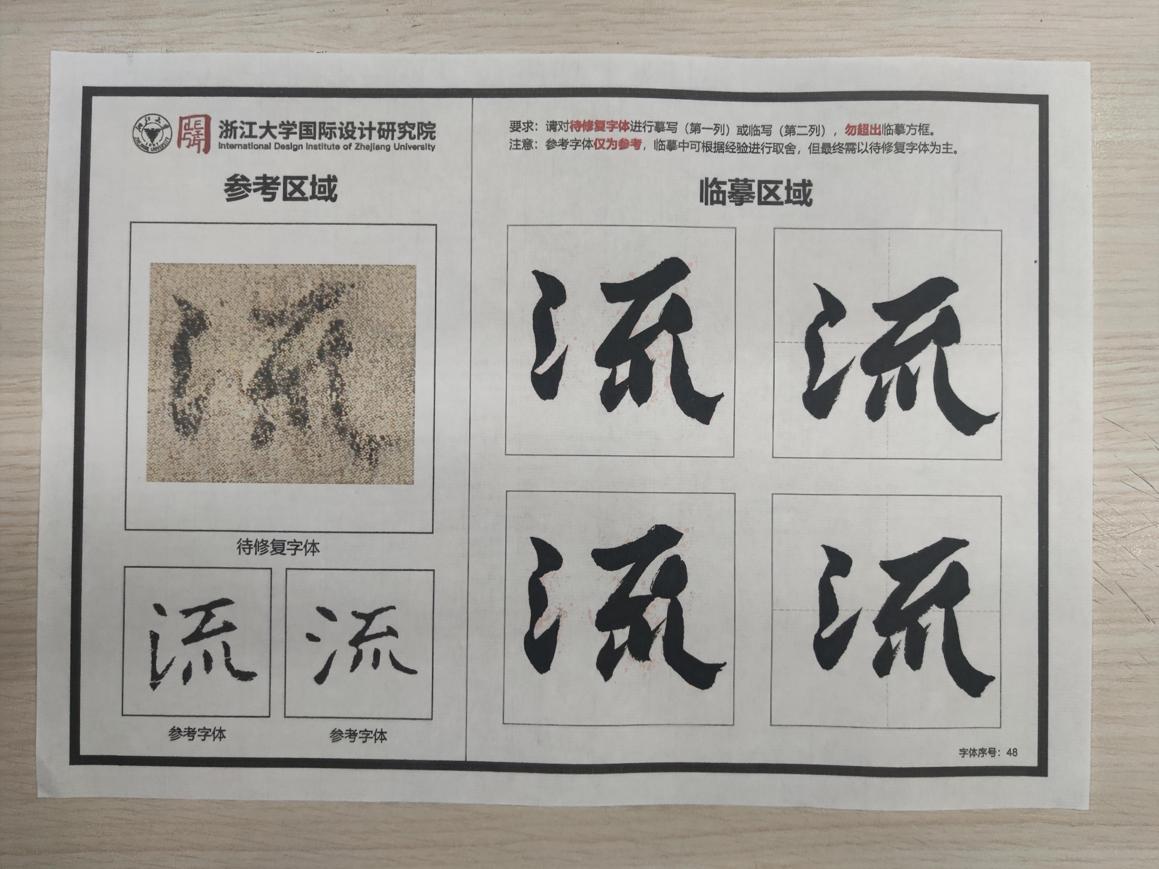 浙江大学国际设计研究院
International Design Institute of Zhejiang University
参考区域
流
待修复字体
流 流
参考字体 参考字体
要求：请对待修复字体进行摹写（第一列）或临写（第二列），勿超出临摹方框。
注意：参考字体仅为参考，临摹中可根据经验进行取舍，但最终需以待修复字体为主。
临摹区域
流 流
流 流
字体序号：48